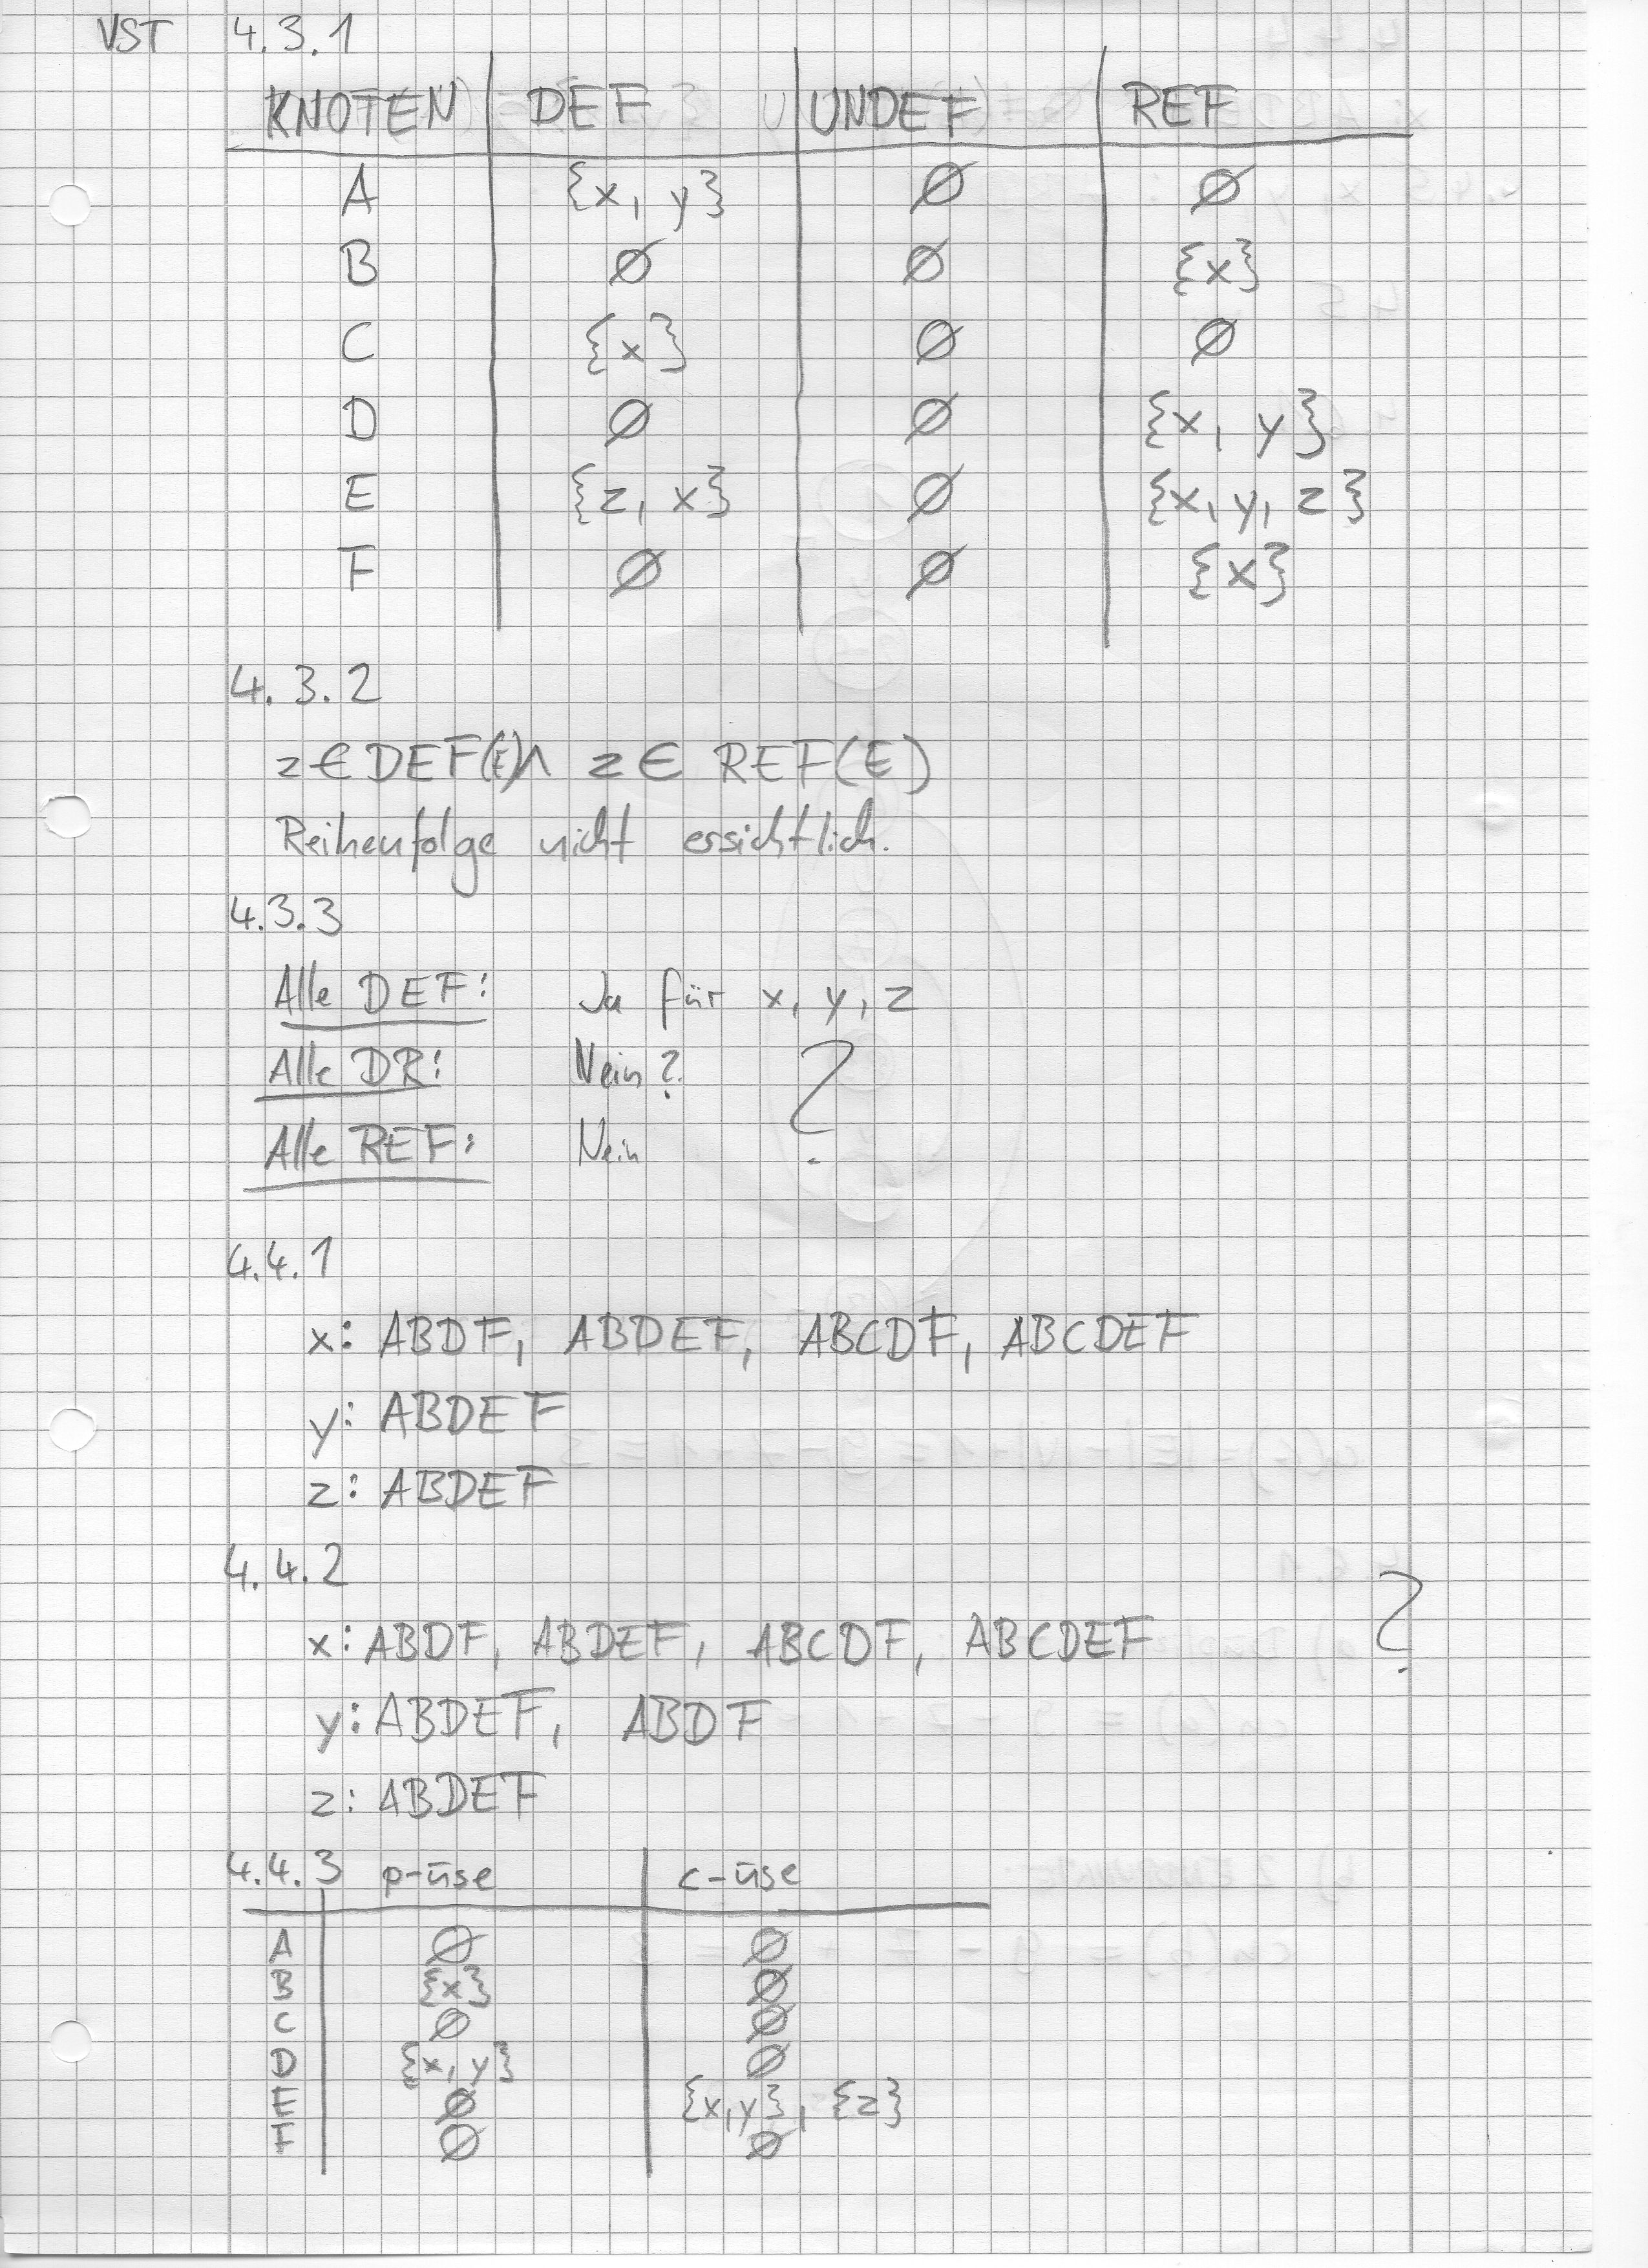 VST 4.3.1
KNOTEN DEF UNDEF REF
A {x, y} ∅ ∅
B ∅ ∅ {x}
C {x} ∅ ∅
D ∅ ∅ {x, y}
E {z, x} ∅ {x, y, z}
F ∅ ∅ {x}
4.3.2
z ∈ DEF(E) ∧ z ∈ REF(E)
Reihenfolge nicht ersichtlich.
4.3.3
Alle DEF: Ja für x, y, z
Alle DR: Nein? ?
Alle REF: Nein
4.4.1
x: ABDF, ABDEF, ABCDF, ABCDEF
y: ABDEF
z: ABDEF
4.4.2 ?
x: ABDF, ABDEF, ABCDF, ABCDEF
y: ABDEF, ABDF
z: ABDEF
4.4.3 p-use c-use
A ∅ ∅
B {x} ∅
C ∅ ∅
D {x, y} ∅
E ∅ {x,y}, {z}
F ∅ ∅